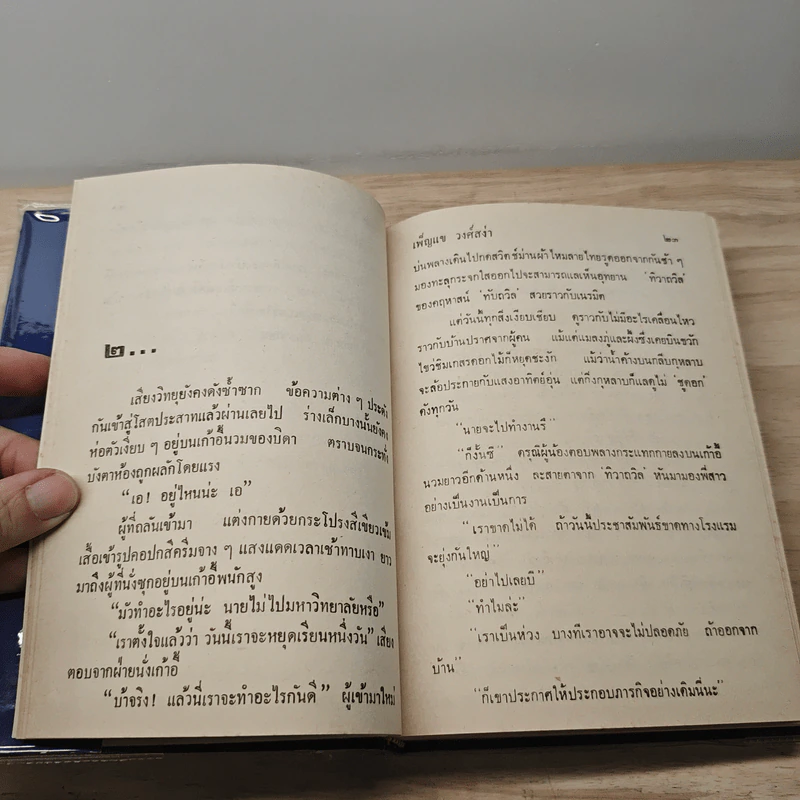 ๒...
เสียงวิทยุยังคงดังซ้ำซาก ข้อความต่าง ๆ ประดัง
กันเข้าสู่โสตประสาทแล้วผ่านเลยไป ร่างเล็กบางนั้นยังคง
ห่อตัวเงียบ ๆ อยู่บนเก้าอี้นวมของบิดา ตราบจนกระทั่ง
บังตาห้องถูกผลักโดยแรง
“เอ! อยู่ไหนน่ะ เอ”
ผู้ที่ถลันเข้ามา แต่งกายด้วยกระโปรงสีเขียวเข้ม
เสื้อเข้ารูปคอปกสีครีมจาง ๆ แสงแดดเวลาเช้าทาบเงา ยาว
มาถึงผู้ที่นั่งซุกอยู่บนเก้าอี้พนักสูง
“มัวทำอะไรอยู่น่ะ นายไม่ไปมหาวิทยาลัยหรือ”
“เราตั้งใจแล้วว่า วันนี้เราจะหยุดเรียนหนึ่งวัน” เสียง
ตอบจากฝ่ายนั่งเก้าอี้
“บ้าจริง! แล้วนี่เราจะทำอะไรกันดี” ผู้เข้ามาใหม่
เพ็ญแข วงศ์สง่า ๒๓
บ่นพลางเดินไปกดสวิตช์ม่านผ้าไหมลายไทยรูดออกจากกันช้า ๆ
มองทะลุกระจกใสออกไปจะสามารถแลเห็นอุทยาน ‘ทิวาถวิล’
ของคฤหาสน์ ‘ทับถวิล’ สวยราวกับเนรมิต
แต่วันนี้ทุกสิ่งเงียบเชียบ ดูราวกับไม่มีอะไรเคลื่อนไหว
ราวกับบ้านปราศจากผู้คน แม้แต่แมลงภู่และผึ้งซึ่งเคยบินขวัก
ไขว่ชิมเกสรดอกไม้ก็หยุดชะงัก แม้ว่าน้ำค้างบนกลีบกุหลาบ
จะล้อประกายกับแสงอาทิตย์อุ่น แต่กิ่งกุหลาบก็แลดูไม่ ‘ชูดอก’
ดังทุกวัน
“นายจะไปทำงานรึ”
“ก็งั้นซี” ดรุณีผู้น้องตอบพลางกระแทกกายลงบนเก้าอี้
นวมยาวอีกด้านหนึ่ง ละสายตาจาก ‘ทิวาถวิล’ หันมามองพี่สาว
อย่างเป็นงานเป็นการ
“เราขาดไม่ได้ ถ้าวันนี้ประชาสัมพันธ์ขาดทางโรงแรม
จะยุ่งกันใหญ่”
“อย่าไปเลยบี”
“ทำไมล่ะ”
“เราเป็นห่วง บางทีเราอาจจะไม่ปลอดภัย ถ้าออกจาก
บ้าน”
“ก็เขาประกาศให้ประกอบภารกิจอย่างเดิมนี่นะ”